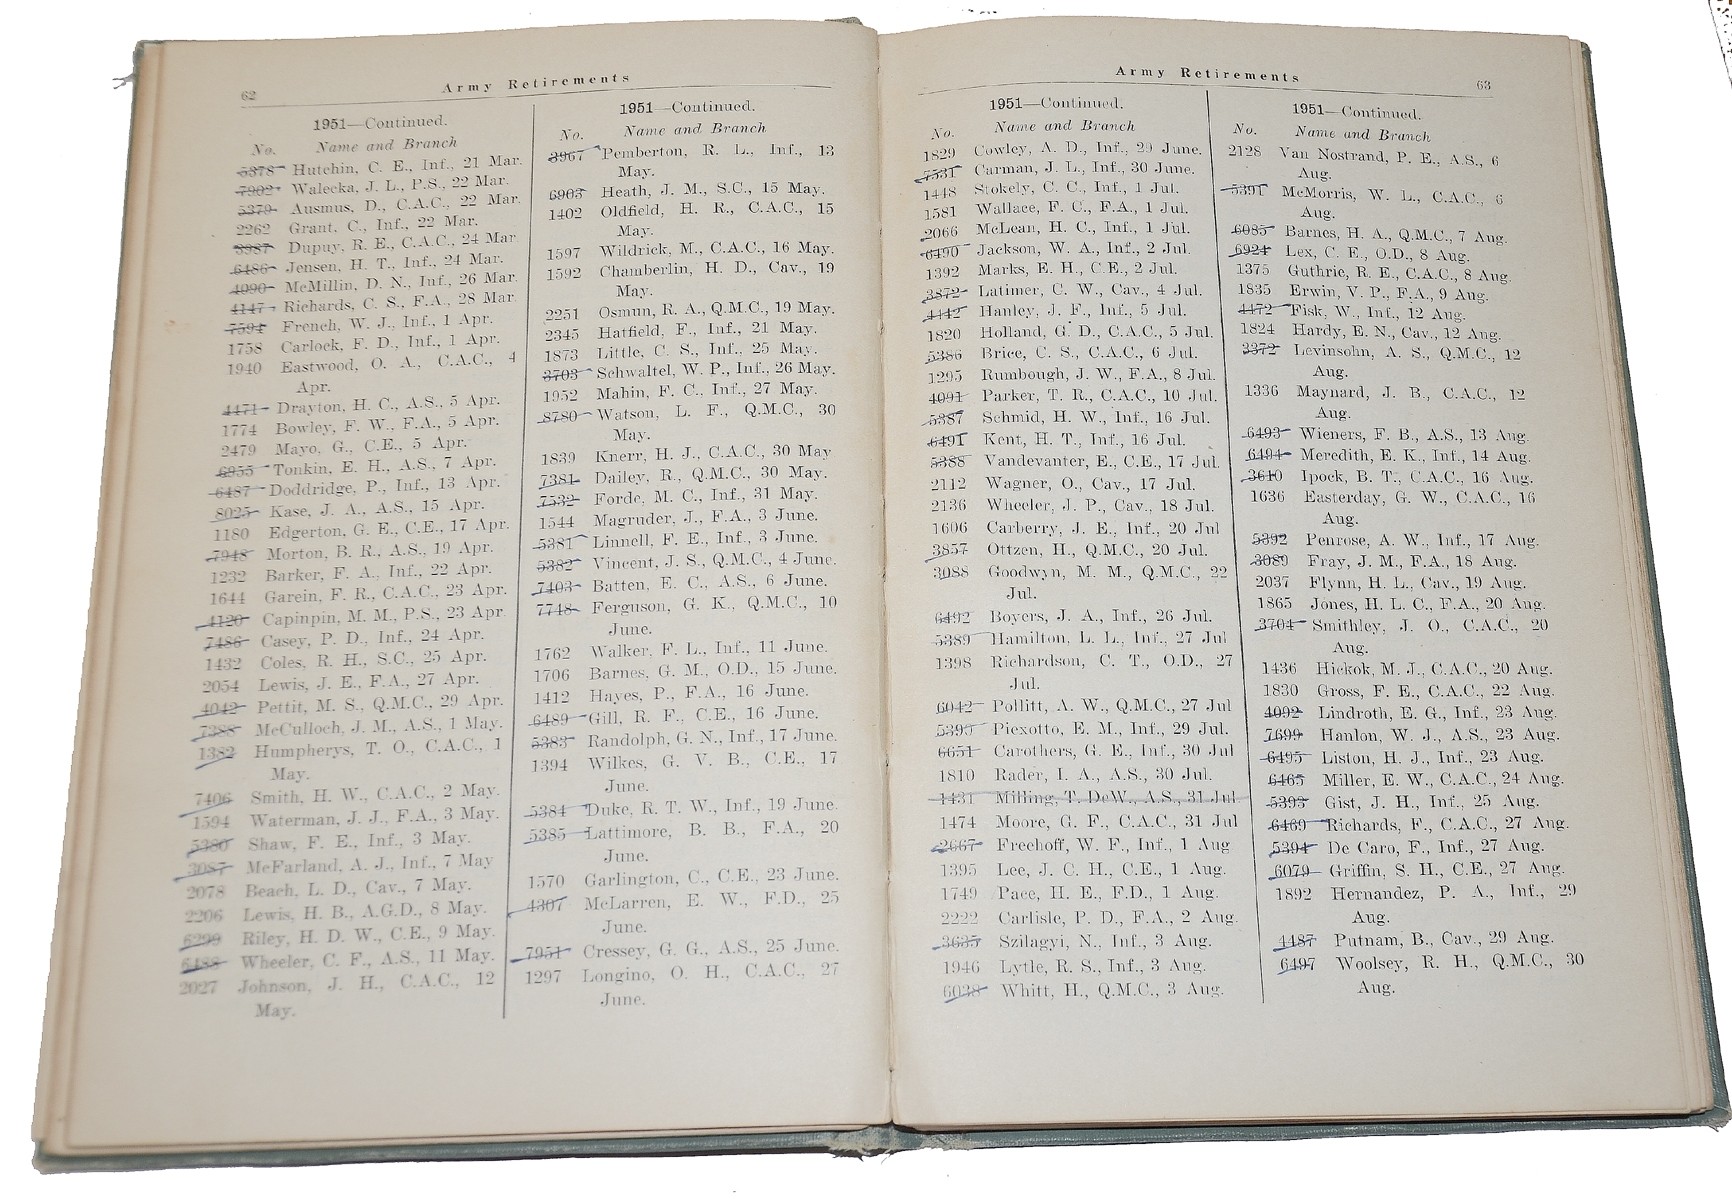 62
Army Retirements
1951—Continued.
No. Name and Branch
5378 Hutchin, C. E., Inf., 21 Mar.
7902 Walecka, J. L., P.S., 22 Mar.
5379 Ausmus, D., C.A.C., 22 Mar.
2262 Grant, C., Inf., 22 Mar.
3987 Dupuy, R. E., C.A.C., 24 Mar
6486 Jensen, H. T., Inf., 24 Mar.
4090 McMillin, D. N., Inf., 26 Mar.
4147 Richards, C. S., F.A., 28 Mar.
7594 French, W. J., Inf., 1 Apr.
1758 Carlock, F. D., Inf., 1 Apr.
1940 Eastwood, O. A., C.A.C., 4
Apr.
4471 Drayton, H. C., A.S., 5 Apr.
1774 Bowley, F. W., F.A., 5 Apr.
2479 Mayo, G., C.E., 5 Apr.
6955 Tonkin, E. H., A.S., 7 Apr.
6487 Doddridge, P., Inf., 13 Apr.
8025 Kase, J. A., A.S., 15 Apr.
1180 Edgerton, G. E., C.E., 17 Apr.
7948 Morton, B. R., A.S., 19 Apr.
1232 Barker, F. A., Inf., 22 Apr.
1644 Garcin, F. R., C.A.C., 23 Apr.
4120 Capinpin, M. M., P.S., 23 Apr.
7486 Casey, P. D., Inf., 24 Apr.
1432 Coles, R. H., S.C., 25 Apr.
2054 Lewis, J. E., F.A., 27 Apr.
4042 Pettit, M. S., Q.M.C., 29 Apr.
7388 McCulloch, J. M., A.S., 1 May.
1382 Humpherys, T. O., C.A.C., 1
May.
7406 Smith, H. W., C.A.C., 2 May.
1594 Waterman, J. J., F.A., 3 May.
5380 Shaw, F. E., Inf., 3 May.
3087 McFarland, A. J., Inf., 7 May
2078 Beach, L. D., Cav., 7 May.
2206 Lewis, H. B., A.G.D., 8 May.
6299 Riley, H. D. W., C.E., 9 May.
6488 Wheeler, C. F., A.S., 11 May.
2027 Johnson, J. H., C.A.C., 12
May.
1951—Continued.
No. Name and Branch
3967 Pemberton, R. L., Inf., 13
May.
6903 Heath, J. M., S.C., 15 May.
1402 Oldfield, H. R., C.A.C., 15
May.
1597 Wildrick, M., C.A.C., 16 May.
1592 Chamberlin, H. D., Cav., 19
May.
2251 Osmun, R. A., Q.M.C., 19 May.
2345 Hatfield, F., Inf., 21 May.
1873 Little, C. S., Inf., 25 May.
3703 Schwaltel, W. P., Inf., 26 May.
1952 Mahin, F. C., Inf., 27 May.
8780 Watson, L. F., Q.M.C., 30
May.
1839 Knerr, H. J., C.A.C., 30 May
7381 Dailey, R., Q.M.C., 30 May.
7532 Forde, M. C., Inf., 31 May.
1544 Magruder, J., F.A., 3 June.
5381 Linnell, F. E., Inf., 3 June.
5382 Vincent, J. S., Q.M.C., 4 June.
7403 Batten, E. C., A.S., 6 June.
7748 Ferguson, G. K., Q.M.C., 10
June.
1762 Walker, F. L., Inf., 11 June.
1706 Barnes, G. M., O.D., 15 June.
1412 Hayes, P., F.A., 16 June.
6489 Gill, R. F., C.E., 16 June.
5383 Randolph, G. N., Inf., 17 June.
1394 Wilkes, G. V. B., C.E., 17
June.
5384 Duke, R. T. W., Inf., 19 June.
5385 Lattimore, B. B., F.A., 20
June.
1570 Garlington, C., C.E., 23 June.
4307 McLarren, E. W., F.D., 25
June.
7951 Cressey, G. G., A.S., 25 June.
1297 Longino, O. H., C.A.C., 27
June.
Army Retirements
63
1951—Continued.
No. Name and Branch
1829 Cowley, A. D., Inf., 29 June.
7531 Carman, J. L., Inf., 30 June.
1448 Stokely, C. C., Inf., 1 Jul.
1581 Wallace, F. C., F.A., 1 Jul.
2066 McLean, H. C., Inf., 1 Jul.
6490 Jackson, W. A., Inf., 2 Jul.
1392 Marks, E. H., C.E., 2 Jul.
3872 Latimer, C. W., Cav., 4 Jul.
4442 Hanley, J. F., Inf., 5 Jul.
1820 Holland, G. D., C.A.C., 5 Jul.
5386 Brice, C. S., C.A.C., 6 Jul.
1295 Rumbough, J. W., F.A., 8 Jul.
4091 Parker, T. R., C.A.C., 10 Jul.
5387 Schmid, H. W., Inf., 16 Jul.
6491 Kent, H. T., Inf., 16 Jul.
5388 Vandevanter, E., C.E., 17 Jul.
2112 Wagner, O., Cav., 17 Jul.
2136 Wheeler, J. P., Cav., 18 Jul.
1606 Carberry, J. E., Inf., 20 Jul
3857 Ottzen, H., Q.M.C., 20 Jul.
3088 Goodwyn, M. M., Q.M.C., 22
Jul.
6492 Boyers, J. A., Inf., 26 Jul.
5389 Hamilton, L. L., Inf., 27 Jul
1398 Richardson, C. T., O.D., 27
Jul.
6042 Pollitt, A. W., Q.M.C., 27 Jul
5390 Piexotto, E. M., Inf., 29 Jul.
6651 Carothers, G. E., Inf., 30 Jul
1810 Rader, I. A., A.S., 30 Jul.
1431 Milling, T. DeW., A.S., 31 Jul
1474 Moore, G. F., C.A.C., 31 Jul
2667 Freehoff, W. F., Inf., 1 Aug
1395 Lee, J. C. H., C.E., 1 Aug.
1749 Pace, H. E., F.D., 1 Aug.
2222 Carlisle, P. D., F.A., 2 Aug.
3635 Szilagyi, N., Inf., 3 Aug.
1946 Lytle, R. S., Inf., 3 Aug.
6038 Whitt, H., Q.M.C., 3 Aug.
1951—Continued.
No. Name and Branch
2128 Van Nostrand, P. E., A.S., 6
Aug.
5391 McMorris, W. L., C.A.C., 6
Aug.
6085 Barnes, H. A., Q.M.C., 7 Aug.
6924 Lex, C. E., O.D., 8 Aug.
1375 Guthrie, R. E., C.A.C., 8 Aug.
1835 Erwin, V. P., F.A., 9 Aug.
4472 Fisk, W., Inf., 12 Aug.
1824 Hardy, E. N., Cav., 12 Aug.
3372 Levinsohn, A. S., Q.M.C., 12
Aug.
1336 Maynard, J. B., C.A.C., 12
Aug.
6493 Wieners, F. B., A.S., 13 Aug.
6494 Meredith, E. K., Inf., 14 Aug.
3610 Ipock, B. T., C.A.C., 16 Aug.
1636 Easterday, G. W., C.A.C., 16
Aug.
5392 Penrose, A. W., Inf., 17 Aug.
3089 Fray, J. M., F.A., 18 Aug.
2037 Flynn, H. L., Cav., 19 Aug.
1865 Jones, H. L. C., F.A., 20 Aug.
3704 Smithley, J. O., C.A.C., 20
Aug.
1436 Hickok, M. J., C.A.C., 20 Aug.
1830 Gross, F. E., C.A.C., 22 Aug.
4092 Lindroth, E. G., Inf., 23 Aug.
7699 Hanlon, W. J., A.S., 23 Aug.
6495 Liston, H. J., Inf., 23 Aug.
6465 Miller, E. W., C.A.C., 24 Aug.
5393 Gist, J. H., Inf., 25 Aug.
6469 Richards, F., C.A.C., 27 Aug.
5394 De Caro, F., Inf., 27 Aug.
6079 Griffin, S. H., C.E., 27 Aug.
1892 Hernandez, P. A., Inf., 29
Aug.
4487 Putnam, B., Cav., 29 Aug.
6497 Woolsey, R. H., Q.M.C., 30
Aug.